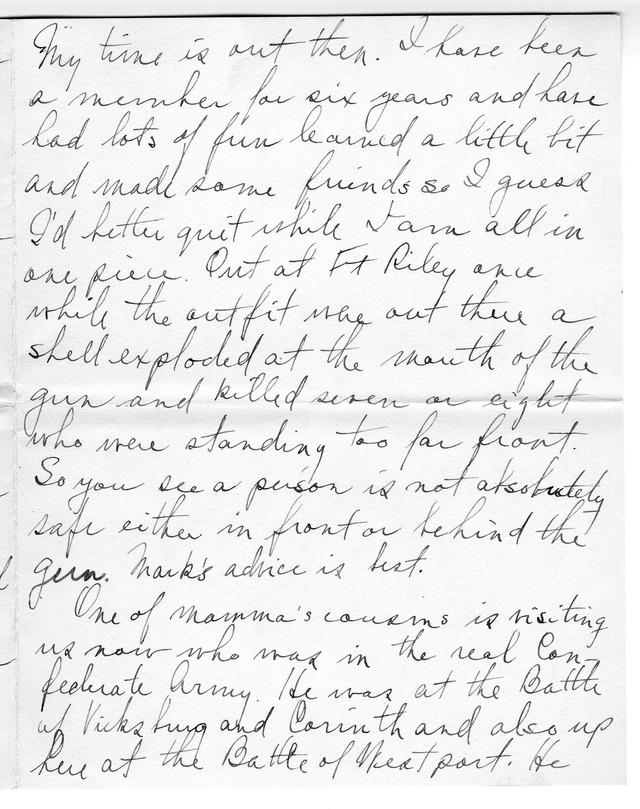 My time is out then. I have been
a member for six years and have
had lots of fun learned a little bit
and made some friends so I guess
I'd better quit while I am all in
one piece. Out at Ft Riley once
while the outfit were out there a
shell exploded at the mouth of the
gun and killed seven or eight
who were standing too far front.
So you see a person is not absolutely
safe either in front or behind the
gun. Mark's advice is best.
One of mamma's cousins is visiting
us now who was in the real Con-
federate Army. He was at the Battle
of Vicksburg and Corinth and also up
here at the Battle of Westport. He